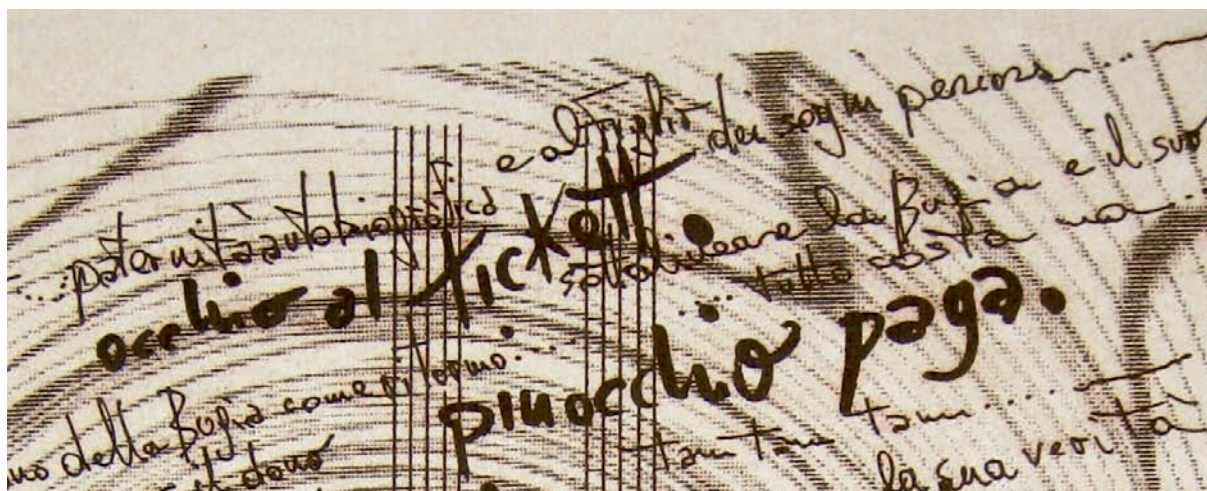 e al Figlio dei sogni
paternità autobiografica
sottolineare la Bugia e il suo
occhio al tickett
... tutto costa
pinocchio paga.
della Bugia come ritorno...
tam tam tam.....
la sua verità
dono